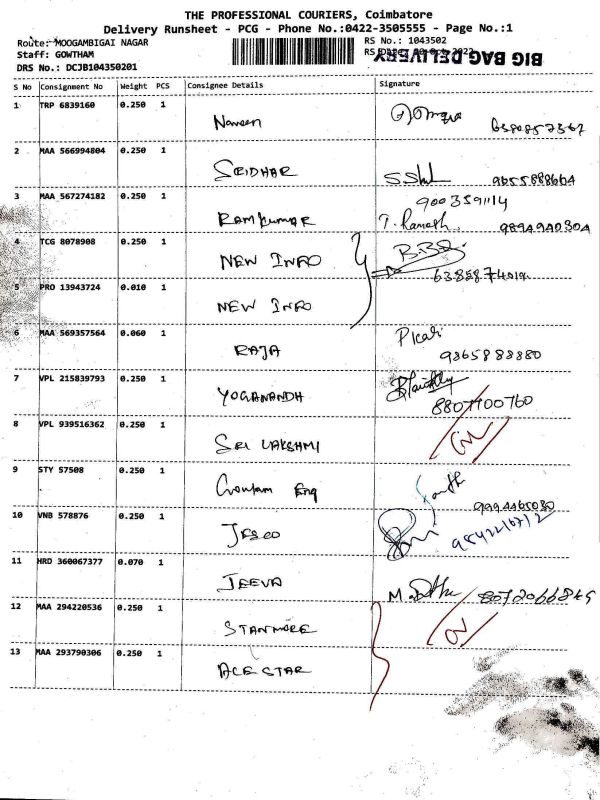 THE PROFESSIONAL COURIERS, Coimbatore
Delivery Runsheet - PCG - Phone No.:0422-3505555 - Page No.:1
Route: MOOGAMBIGAI NAGAR
RS No.: 1043502
Staff: GOWTHAM
BIG BAG DELIVERY
DRS No.: DCJB104350201
S No Consignment No Weight PCS Consignee Details Signature
1 TRP 6839160 0.250 1 Naveen
2 MAA 566994804 0.250 1 SRIDHAR
3 MAA 567274182 0.250 1 RAMKUMAR
9003591114
T. Ramesh
4 TCG 8078908 0.250 1 NEW INFO
5 PRO 13943724 0.010 1 NEW INFO
6 MAA 569357564 0.060 1 RAJA
9365888880
7 VPL 215839793 0.250 1 YOGANANDH
8807700760
8 VPL 939516362 0.250 1 SRI LAKSHMI
9 STY 57508 0.250 1 Goutam Enq
10 VNB 578876 0.250 1 JESCO
11 HRD 360067377 0.070 1 JEEVA
12 MAA 294220536 0.250 1 STANMORE
13 MAA 293790306 0.250 1 ACE STAR